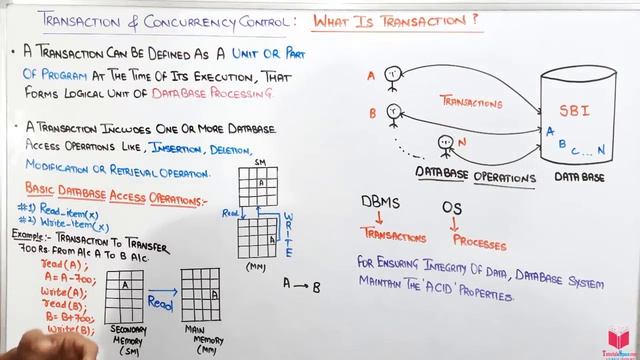 TRANSACTION & CONCURRENCY CONTROL: WHAT IS TRANSACTION?
• A TRANSACTION CAN BE DEFINED AS A UNIT OR PART
OF PROGRAM AT THE TIME OF ITS EXECUTION, THAT
FORMS LOGICAL UNIT OF DATABASE PROCESSING.
• A TRANSACTION INCLUDES ONE OR MORE DATABASE
ACCESS OPERATIONS LIKE, INSERTION, DELETION,
MODIFICATION OR RETRIEVAL OPERATION.
BASIC DATABASE ACCESS OPERATIONS:-
#1) Read-item(x)
#2) Write-item(x)
Example:- TRANSACTION TO TRANSFER
700 RS. FROM A/C A TO B A/C.
read(A);
A = A-700;
write(A);
read(B);
B = B+700;
write(B);
A
SECONDARY
MEMORY
(SM)
Read
A
MAIN
MEMORY
(MM)
SM
A
Read
WRITE
A
(MM)
A → B
A
B
N
TRANSACTIONS
SBI
A
B
C...N
DATABASE OPERATIONS
DATABASE
DBMS
TRANSACTIONS
OS
PROCESSES
FOR ENSURING INTEGRITY OF DATA, DATABASE SYSTEM
MAINTAIN THE 'ACID' PROPERTIES.